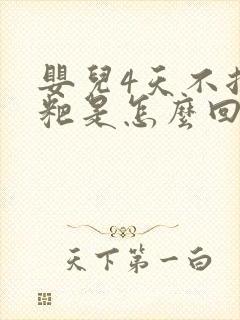 嬰兒4天不
粑是怎麼回
天下第一白